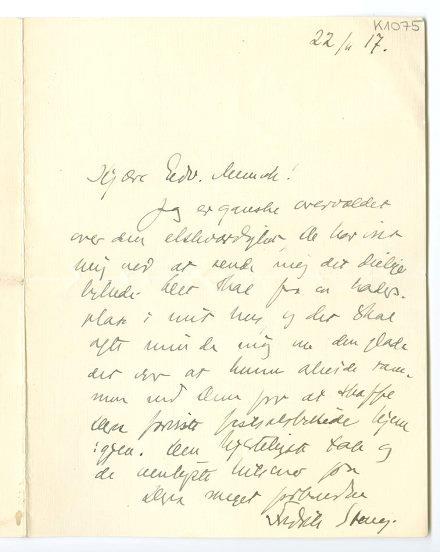 K1075
22/11 17.
Kjære Edv. Munch!
Jeg er ganske overvældet
over den elskværdighet De har vist
mig ved at sende mig det deilige
billede. Det skal faa en hæders-
plads i mit hus og det skal
ofte minde mig om den glæde
det var at kunne arbeide sam-
men med Dem for at skaffe
Dem
hjem
igjen. Den hjerteligste tak og
de venligste hilsener fra
Deres meget forbundne
Fredrik Stang.